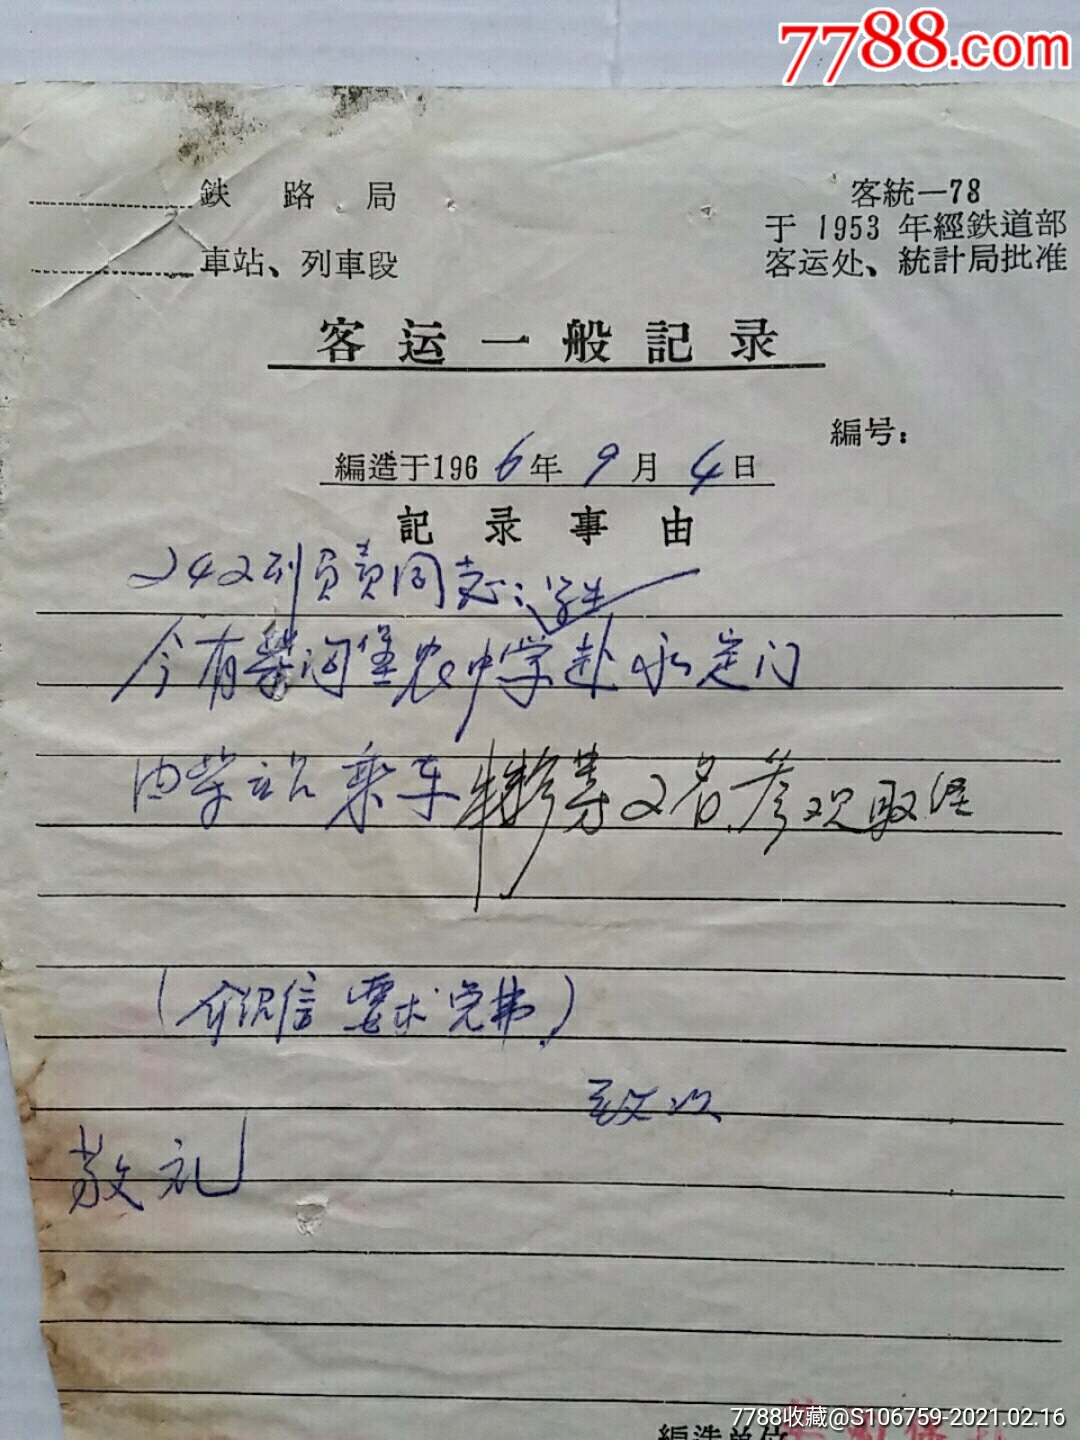 7788.com
鉄路局
客統—78
于1953年經鉄道部
車站、列車段
客运处、統計局批准
客运一般記录
編号：
編造于1966年9月4日
記录事由
242列員責同志：学生
今有柴沟堡农中学赴永定门
由柴站乘车等2名.参观取经
（介绍信要求免费.）
致以
敬礼
編造单位
7788收藏@S106759-2021.02.16